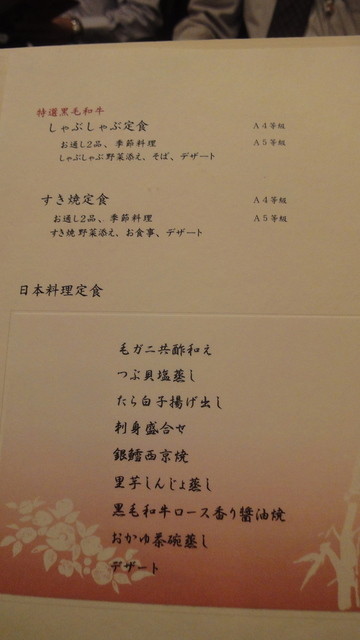 特選黒毛和牛
しゃぶしゃぶ定食 A4等級
お通し2品、季節料理 A5等級
しゃぶしゃぶ野菜添え、そば、デザート
すき焼定食 A4等級
お通し2品、季節料理 A5等級
すき焼野菜添え、お食事、デザート
日本料理定食
毛ガニ共酢和え
つぶ貝塩蒸し
たら白子揚げ出し
刺身盛合せ
銀鱈西京焼
里芋しんじょ蒸し
黒毛和牛ロース香り醤油焼
おかゆ茶碗蒸し
デザート